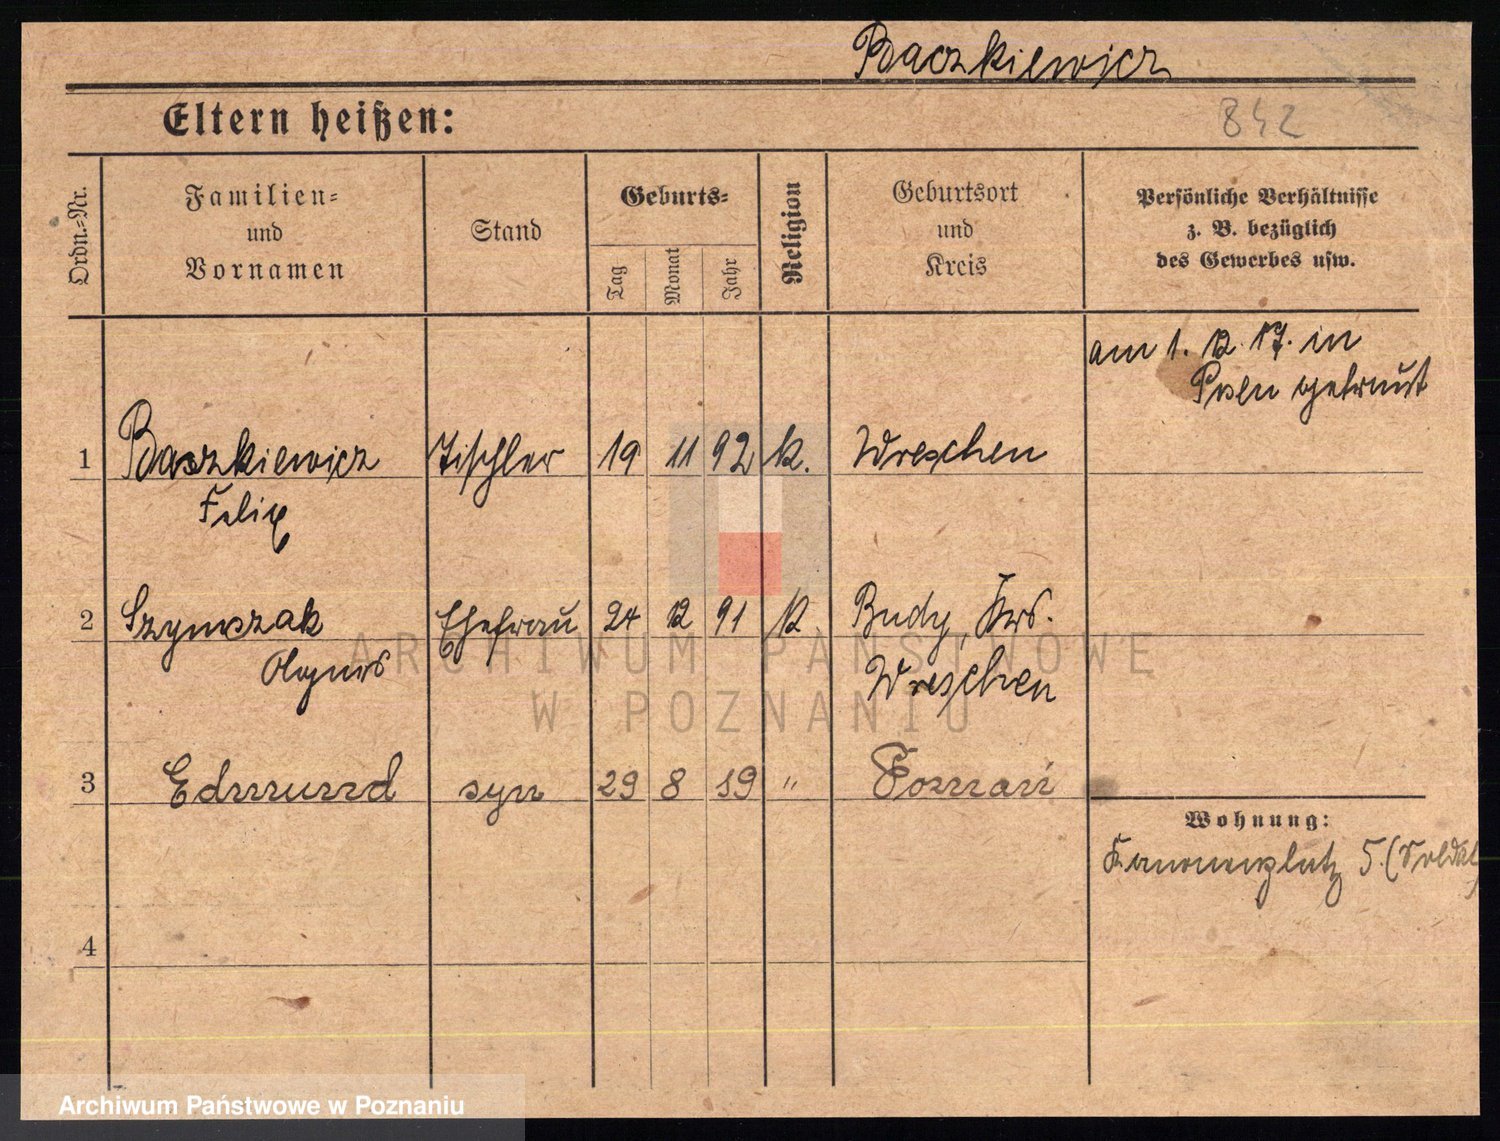 Baczkiewicz
Eltern heißen:
842
Ordn.-Nr.
Familien-
und
Vornamen
Stand
Geburts-
Tag
Monat
Jahr
Religion
Geburtsort
und
Kreis
Persönliche Verhältnisse
z. B. bezüglich
des Gewerbes usw.
am 1. 12. 17. in
Posen getraut
1 Baczkiewicz Tischler 19 11 92 k. Wreschen
Felix
2 Szymczak Ehefrau 24 12 91 k. Budy, Krs.
Agnes Wreschen
3 Edmund syn 29 8 19 " Poznań
Wohnung:
Kanonenplatz 5.
4
ARCHIWUM PAŃSTWOWE
W POZNANIU
Archiwum Państwowe w Poznaniu